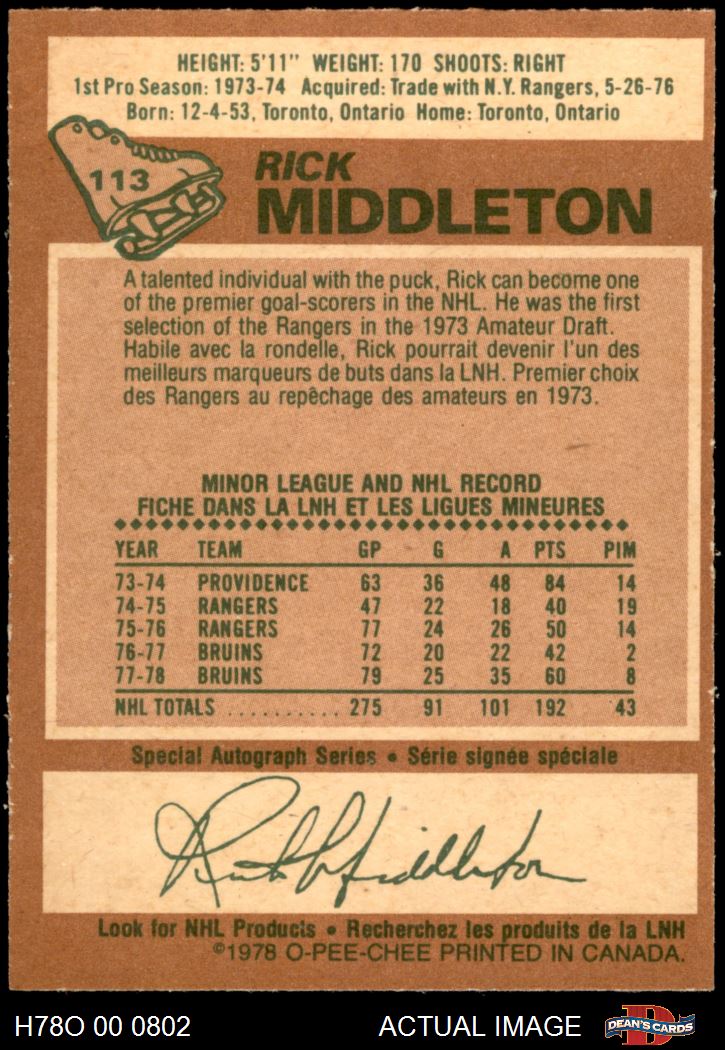 HEIGHT: 5'11" WEIGHT: 170 SHOOTS: RIGHT
1st Pro Season: 1973-74 Acquired: Trade with N.Y. Rangers, 5-26-76
Born: 12-4-53, Toronto, Ontario Home: Toronto, Ontario
113
RICK
MIDDLETON
A talented individual with the puck, Rick can become one
of the premier goal-scorers in the NHL. He was the first
selection of the Rangers in the 1973 Amateur Draft.
Habile avec la rondelle, Rick pourrait devenir l'un des
meilleurs marqueurs de buts dans la LNH. Premier choix
des Rangers au repêchage des amateurs en 1973.
MINOR LEAGUE AND NHL RECORD
FICHE DANS LA LNH ET LES LIGUES MINEURES
YEAR TEAM GP G A PTS PIM
73-74 PROVIDENCE 63 36 48 84 14
74-75 RANGERS 47 22 18 40 19
75-76 RANGERS 77 24 26 50 14
76-77 BRUINS 72 20 22 42 2
77-78 BRUINS 79 25 35 60 8
NHL TOTALS .......... 275 91 101 192 43
Special Autograph Series • Série signée spéciale
Rick Middleton
Look for NHL Products • Recherchez les produits de la LNH
©1978 O-PEE-CHEE PRINTED IN CANADA.
H78O 00 0802 ACTUAL IMAGE D DEAN'S CARDS